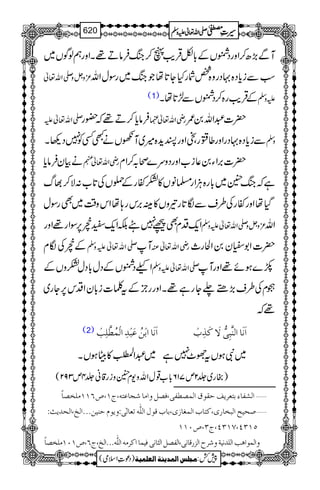 620 سیرتِ مصطفیٰ صلی اللہ تعالیٰ علیہ وسلم
آگے بڑھ کر اور دشمنوں کے بالکل قریب پہنچ کر جنگ فرماتے تھے۔ اور ہم لوگوں میں
سب سے زیادہ بہادر وہ شخص شمار کیا جاتا تھا جو جنگ میں رسول اللہ عزوجل و صلی اللہ تعالیٰ
علیہ وسلم کے قریب رہ کر دشمنوں سے لڑتا تھا۔ (1)
حضرت عبداللہ بن عمر رضی اللہ تعالیٰ عنہما فرمایا کرتے تھے کہ حضور صلی اللہ تعالیٰ علیہ
وسلم سے زیادہ بہادر اور طاقتور، سخی اور پسندیدہ میری آنکھوں نے کبھی کسی کو نہیں دیکھا۔
حضرت براء بن عازب اور دوسرے صحابہ کرام رضی اللہ تعالیٰ عنہم نے بیان فرمایا
ہے کہ جنگ حنین میں بارہ ہزار مسلمانوں کا لشکر کفار کے حملوں کی تاب نہ لا کر بھاگ
گیا تھا اور کفار کی طرف سے لگاتار تیروں کا مینہ برس رہا تھا اس وقت میں بھی رسول
اللہ عزوجل و صلی اللہ تعالیٰ علیہ وسلم ایک قدم بھی پیچھے نہیں ہٹے بلکہ ایک سفید خچر پر سوار تھے اور
حضرت ابوسفیان بن الحارث رضی اللہ تعالیٰ عنہ آپ صلی اللہ تعالیٰ علیہ وسلم کے خچر کی لگام
پکڑے ہوئے تھے اور آپ صلی اللہ تعالیٰ علیہ وسلم اکیلے دشمنوں کے دل بادل لشکروں کے
ہجوم کی طرف بڑھتے چلے جارہے تھے۔ اور رجز کے یہ کلمات زبان اقدس پر جاری
تھے کہ
اَنَا النَّبِیُّ لَا کَذِبْ اَنَا ابْنُ عَبْدِ الْمُطَّلِبْ (2)
میں نبی ہوں یہ جھوٹ نہیں ہے میں عبدالمطلب کا بیٹا ہوں۔
(بخاری جلد۲ ص۶۱۷ باب قول اللہ ویوم حنین وزرقانی جلد۴ ص۲۹۳)
الشفاء بتعریف حقوق المصطفی،فصل واما شجاعته،ج۱،ص۱۱۶ملخصاً
صحیح البخاری،کتاب المغازی،باب قول اللّٰه تعالی:ویوم حنین...الخ،الحدیث:
۴۳۱۵،۴۳۱۷،ج۳،ص۱۱۰
والمواهب اللدنیة وشرح الزرقانی،الفصل الثانی فیما اکرمه اللّٰه...الخ،ج۶،ص۱۰۱ملخصاً
پیش کش: مجلس المدینة العلمیة (دعوتِ اسلامی)